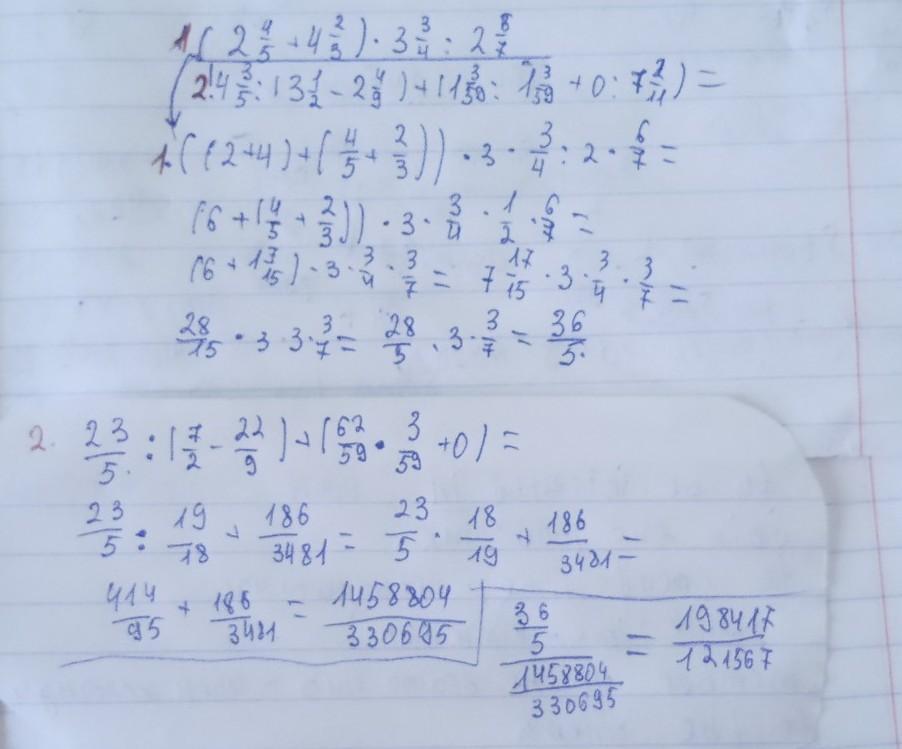 1 ( 2 4/5 + 4 2/3 ) · 3 3/4 : 2 8/7
2. 4 3/5 : ( 3 1/2 - 2 4/9 ) + ( 1 3/59 : 1 3/59 + 0 : 7 2/11 ) =
1. ( ( 2 + 4 ) + ( 4/5 + 2/3 ) ) · 3 · 3/4 : 2 · 6/7 =
( 6 + ( 4/5 + 2/3 ) ) · 3 · 3/4 · 1/2 · 6/7 =
( 6 + 1 7/15 ) · 3 · 3/4 · 3/7 = 7 17/15 · 3 · 3/4 · 3/7 =
28/15 · 3 3 · 3/7 = 28/5 · 3 · 3/7 = 36/5
2. 23/5 : ( 7/2 - 22/9 ) + ( 62/59 · 3/59 + 0 ) =
23/5 : 19/18 + 186/3481 = 23/5 · 18/19 + 186/3481 =
414/95 + 186/3481 = 1458804/330695
36/5 / 1458804/330695 = 198417/121567